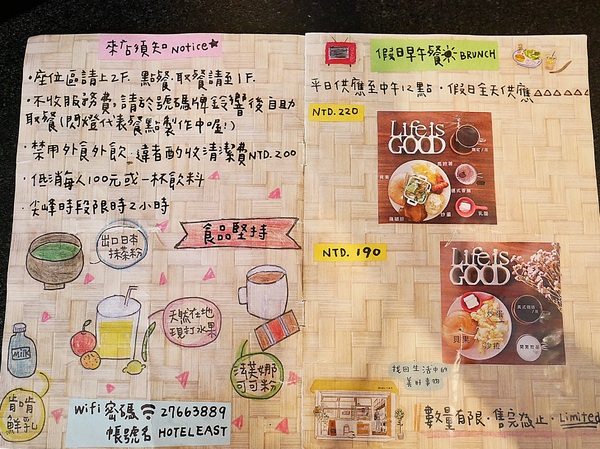 來店須知 Notice★
・座位區請上2F. 點餐.取餐請至1F.
・不收服務費,請於號碼牌鈴響後自助
取餐(閃燈代表餐點製作中喔!)
・禁用外食外飲.違者酌收清潔費NTD.200
・低消每人100元或一杯飲料
・尖峰時段限時2小時
食品堅持
出口日本
抹茶粉
天然在地
現打水果
Milk
法芙娜
可可粉
肯啃
鮮乳
Wifi 密碼 29663889
帳號名 HOTELEAST
假日早午餐 BRUNCH
平日供應至中午12點・假日全天供應
NTD.220
Life is
GOOD
貝果
炒蛋
乳酪
NTD. 190
Life is
GOOD
炒蛋
貝果
沙拉
找回生活中的
美好事物
數量有限・售完為止・Limited